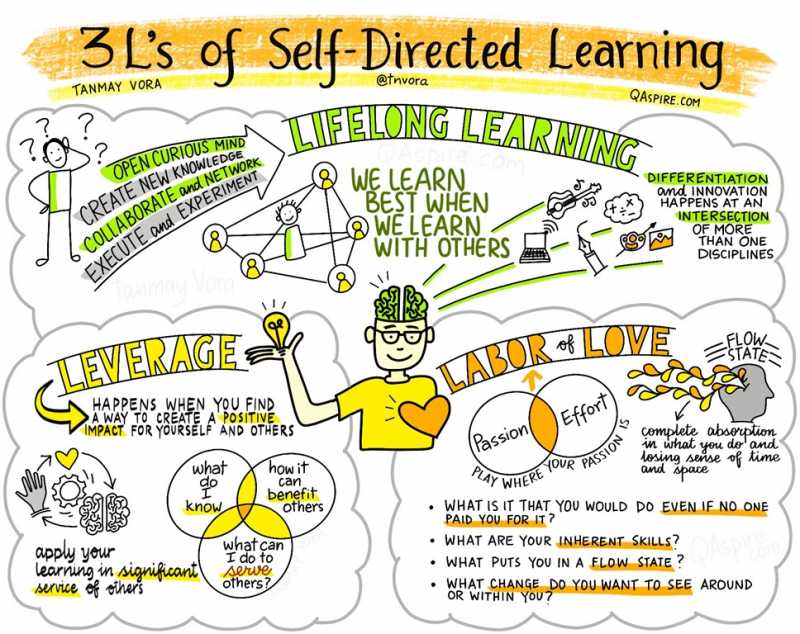 3 L's of Self-Directed Learning
TANMAY VORA
@tnvora
QASPIRE.COM
LIFELONG LEARNING
? ? ? ?
OPEN CURIOUS MIND
CREATE NEW KNOWLEDGE
COLLABORATE and NETWORK
EXECUTE and EXPERIMENT
WE LEARN
BEST WHEN
WE LEARN
WITH OTHERS
DIFFERENTIATION
and INNOVATION
HAPPENS AT AN
INTERSECTION
OF MORE
THAN ONE
DISCIPLINES
QAspire.com
Tanmay Vora
LEVERAGE
HAPPENS WHEN YOU FIND
A WAY TO CREATE A POSITIVE
IMPACT FOR YOURSELF AND OTHERS
what
do
I
know
how it
can
benefit
others
what can
I do to
serve
others?
apply your
learning in significant
service of others
LABOR of LOVE
Passion
Effort
PLAY WHERE YOUR PASSION IS
FLOW
STATE
complete absorption
in what you do and
losing sense of time
and space
• WHAT IS IT THAT YOU WOULD DO EVEN IF NO ONE
PAID YOU FOR IT?
• WHAT ARE YOUR INHERENT SKILLS?
• WHAT PUTS YOU IN A FLOW STATE?
• WHAT CHANGE DO YOU WANT TO SEE AROUND
OR WITHIN YOU?
QAspire.com